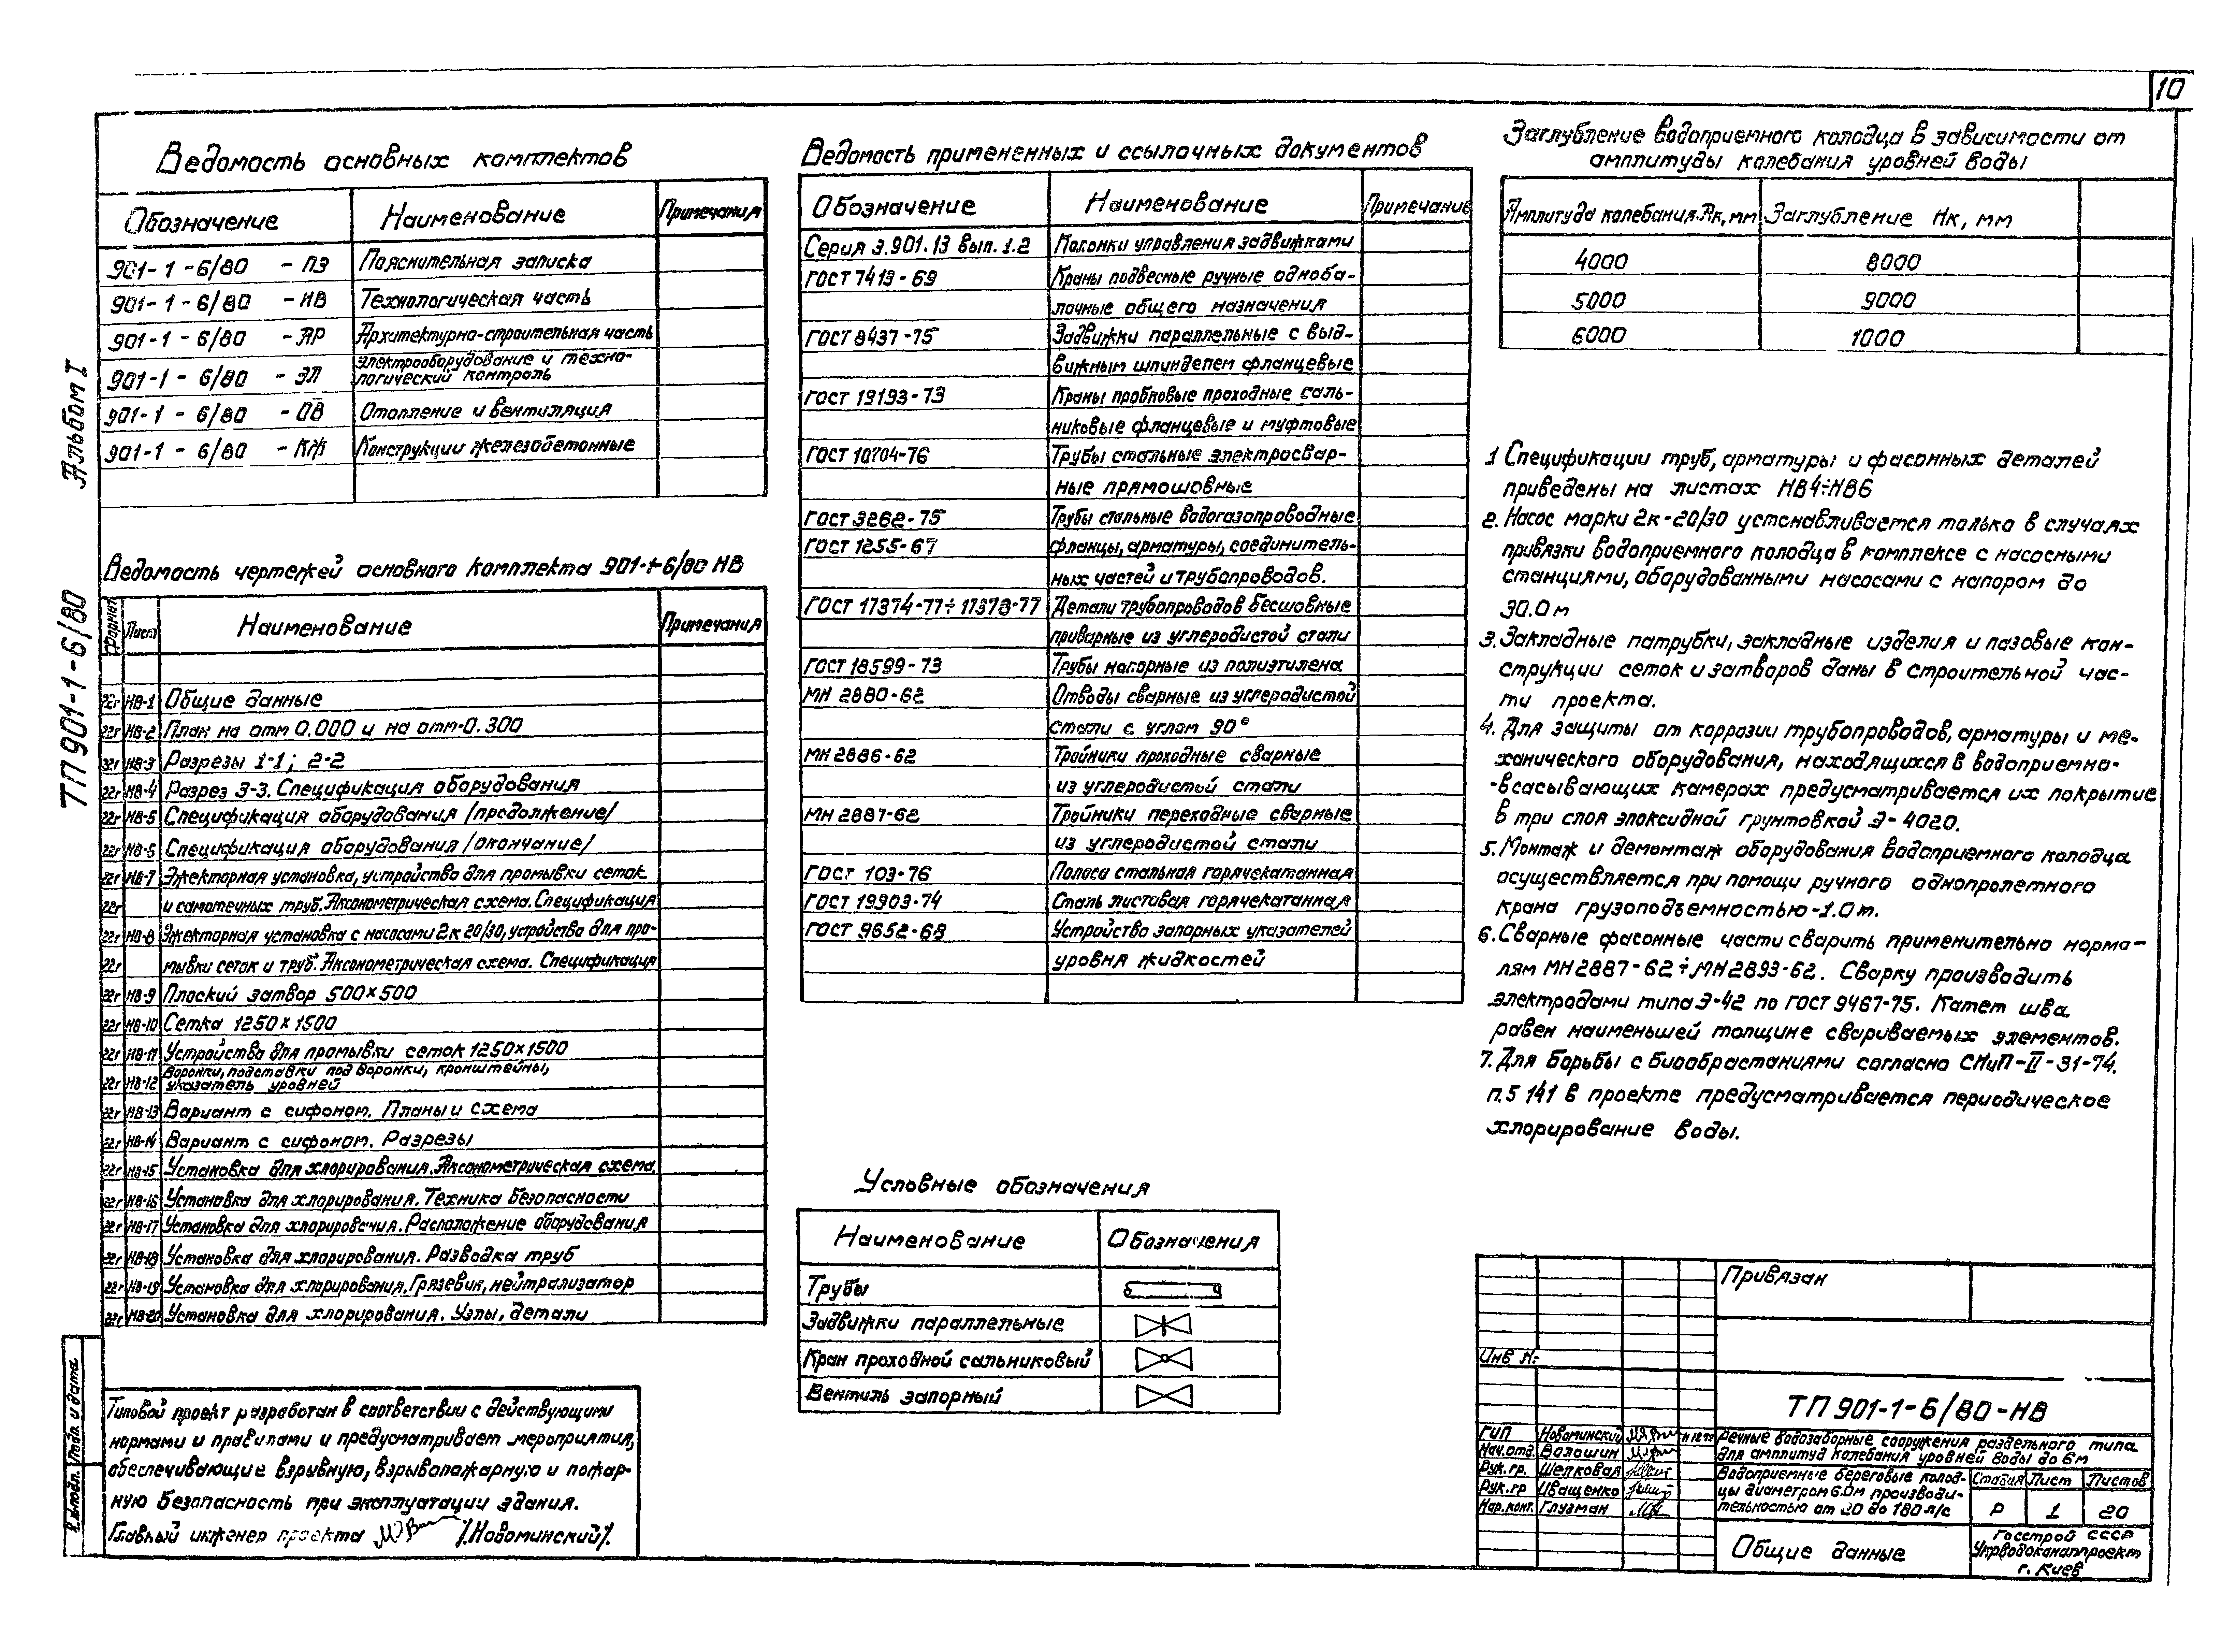 10
Альбом I
ТП 901-1-6/80
Ведомость основных комплектов
Обозначение Наименование Примечания
901-1-6/80 - ПЗ Пояснительная записка
901-1-6/80 - НВ Технологическая часть
901-1-6/80 - АР Архитектурно-строительная часть
901-1-6/80 - ЭЛ Электрооборудование и техно-
логический контроль
901-1-6/80 - ОВ Отопление и вентиляция
901-1-6/80 - КЖ Конструкции железобетонные
Ведомость чертежей основного комплекта 901-1-6/80 НВ
Формат Лист Наименование Примечания
22г НВ-1 Общие данные
22г НВ-2 План на отм 0.000 и на отм-0.300
22г НВ-3 Разрезы 1-1; 2-2
22г НВ-4 Разрез 3-3. Спецификация оборудования
22г НВ-5 Спецификация оборудования /продолжение/
22г НВ-6 Спецификация оборудования /окончание/
22г НВ-7 Эжекторная установка, устройство для промывки сеток
22г и самотечных труб. Аксонометрическая схема. Спецификация
22г НВ-8 Эжекторная установка с насосами 2к 20/30, устройство для про-
22г мывки сеток и труб. Аксонометрическая схема. Спецификация
22г НВ-9 Плоский затвор 500×500
22г НВ-10 Сетка 1250×1500
22г НВ-11 Устройство для промывки сеток 1250×1500
22г НВ-12 Воронки, подставки под воронки, кронштейны,
указатель уровней
22г НВ-13 Вариант с сифоном. Планы и схема
22г НВ-14 Вариант с сифоном. Разрезы
22г НВ-15 Установка для хлорирования. Аксонометрическая схема.
22г НВ-16 Установка для хлорирования. Техника безопасности
22г НВ-17 Установка для хлорировечия. Расположение оборудования
22г НВ-18 Установка для хлорирования. Разводка труб
22г НВ-19 Установка для хлорирования. Грязевик, нейтрализатор
22г НВ-20 Установка для хлорирования. Узлы, детали
Типовой проект разработан в соответствии с действующими
нормами и правилами и предусматривает мероприятия,
обеспечивающие взрывную, взрывопожарную и пожар-
ную безопасность при эксплуатации здания.
Главный инженер проекта /Новоминский/.
Инв.№подл. Подп. и дата
Ведомость примененных и ссылочных документов
Обозначение Наименование Примечание
Серия 3.901.13 вып. 1.2 Колонки управления задвижками
ГОСТ 7413-69 Краны подвесные ручные одноба-
лочные общего назначения
ГОСТ 8437-75 Задвижки параллельные с выд-
вижным шпинделем фланцевые
ГОСТ 19193-73 Краны пробковые проходные саль-
никовые фланцевые и муфтовые
ГОСТ 10704-76 Трубы стальные электросвар-
ные прямошовные
ГОСТ 3262-75 Трубы стальные водогазопроводные
ГОСТ 1255-67 Фланцы, арматуры, соединитель-
ных частей и трубопроводов.
ГОСТ 17374-77÷17378-77 Детали трубопроводов бесшовные
приварные из углеродистой стали
ГОСТ 18599-73 Трубы напорные из полиэтилена
МН 2880-62 Отводы сварные из углеродистой
стали с углом 90°
МН 2886-62 Тройники проходные сварные
из углеродистой стали
МН 2887-62 Тройники переходные сварные
из углеродистой стали
ГОСТ 103-76 Полоса стальная горячекатанная
ГОСТ 19903-74 Сталь листовая горячекатанная
ГОСТ 9652-68 Устройство запорных указателей
уровня жидкостей
Условные обозначения
Наименование Обозначения
Трубы
Задвижки параллельные
Кран проходной сальниковый
Вентиль запорный
Заглубление водоприемного колодца в зависимости от
амплитуды колебания уровней воды
Амплитуда колебания Ак, мм Заглубление Нк, мм
4000 8000
5000 9000
6000 1000
1 Спецификации труб, арматуры и фасонных деталей
приведены на листах НВ4÷НВ6
2. Насос марки 2к-20/30 устанавливается только в случаях
привязки водоприемного колодца в комплексе с насосными
станциями, оборудованными насосами с напором до
30.0м
3. Закладные патрубки, закладные изделия и пазовые кон-
струкции сеток и затворов даны в строительной час-
ти проекта.
4. Для защиты от коррозии трубопроводов, арматуры и ме-
ханического оборудования, находящихся в водоприемно-
-всасывающих камерах предусматривается их покрытие
в три слоя эпоксидной грунтовкой Э-4020.
5. Монтаж и демонтаж оборудования водоприемного колодца
осуществляется при помощи ручного однопролетного
крана грузоподъемностью-1.0т.
6. Сварные фасонные части сварить применительно норма-
лям МН2887-62÷МН2893-62. Сварку производить
электродами типа Э-42 по ГОСТ 9467-75. Катет шва
равен наименьшей толщине свариваемых элементов.
7. Для борьбы с биообрастаниями согласно СНиП-II-31-74.
п.5 141 в проекте предусматривается периодическое
хлорирование воды.
Привязан
Инв №
ТП 901-1-6/80-НВ
ГИП Новоминский
Нач.отд. Волошин
Рук.гр. Шелковая
Рук.гр Иващенко
Нор.конт. Глузман
Речные водозаборные сооружения раздельного типа
для амплитуд колебания уровней воды до 6м
Водоприемные береговые колод-
цы диаметром 6.0м производи-
тельностью от 20 до 180 л/с
Стадия Лист Листов
Р 1 20
Общие данные
Госстрой СССР
Укрводоканалпроект
г. Киев